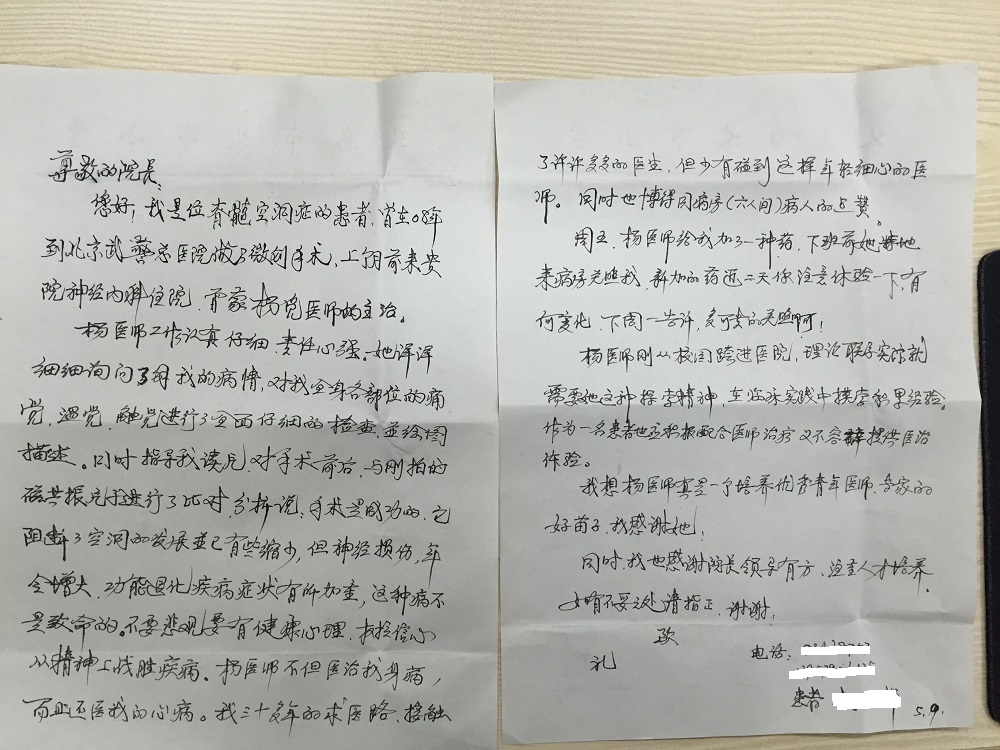 尊敬的院长:
您好,我是位脊髓空洞症的患者,曾在08年
到北京武警总医院做了微创手术,上月前来安
院神经内科住院,有蒙杨 医师的主治。
杨医师工作认真仔细,责任心强,她详详
细细询问了解我的病情,对我全身各部位的痛
觉、温觉、触觉进行了全面仔细的检查,并绘图
描述。同时指导我读片,对手术前后,与刚拍的
磁共振片子进行了比对,分析说:手术是成功的,它
阻断了空洞的发展并已有些缩少,但神经损伤,年
令增大,功能退化,疾病症状有所加查,这种病不
是致命的。不要悲观要有健康心理,扶投信心
从精神上战胜疾病。杨医师不但医治我身病,
而且还医我的心病。我三十多年的求医路,接触
了许许多多的医生,但少有碰到这样年轻细心的医
师。同时也博得同病房(六人间)病人的点赞。
周五,杨医师给我加了一种药,下班前她 地
来病房关照我,新加的药近二天你注意体验一下,有
何变化,下周一告诉,多可贵的关照啊!
杨医师刚从校园跨进医院,理论联系实际就
需要她这种探索精神,在临床实践中摸索积累经验。
作为一名患者也应积极配合医师治疗,义不容辞提供医治
体验。
我想杨医师真是一个培养优秀青年医师、专家的
好苗子,我感谢她!
同时,我也感谢院长领导有方,注重人才培养。
如有不妥之处请指正,谢谢!
致
礼
电话:
患者
5.9.